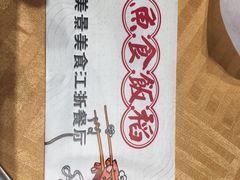 魚食飯稻
美景美食·江浙餐厅